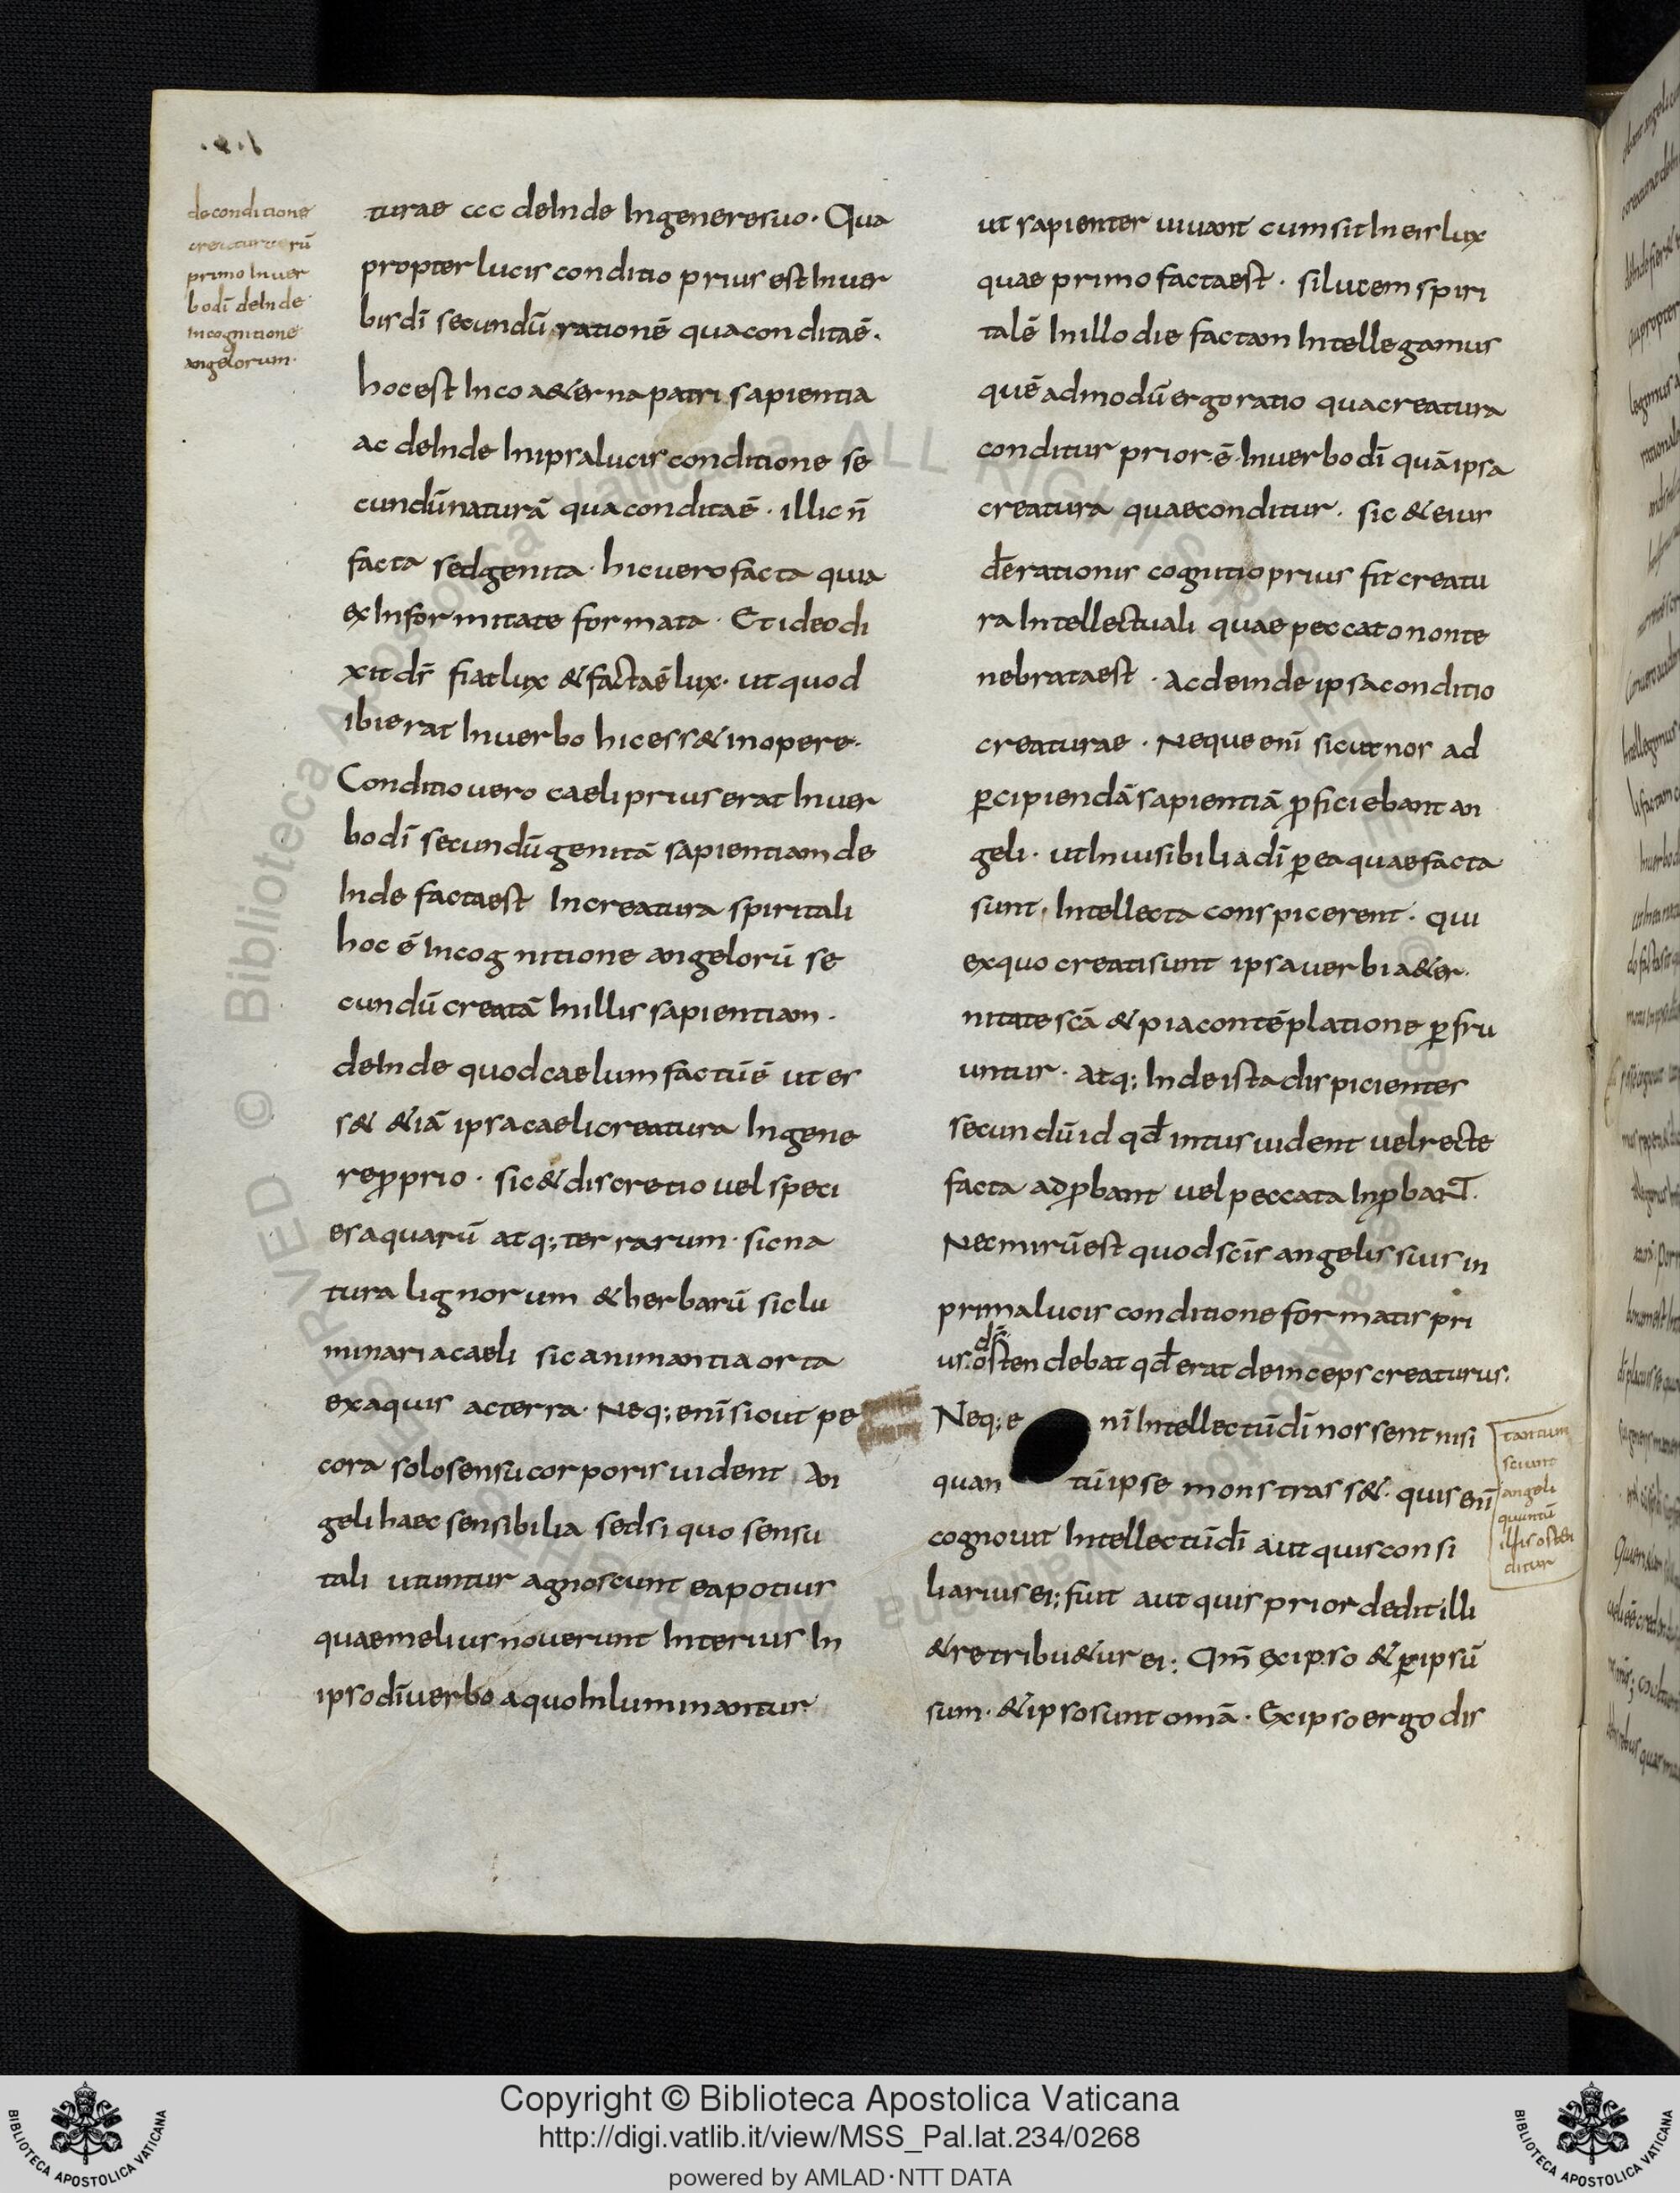 deconditione
creaturarū
primo Inuer
bodī deInde
Incognitione
angelorum.
turae ccc deInde Ingeneresuo. Qua
propter lucis conditio prius est Inuer
bisdī secundū rationē qua conditaē.
hocest Incoa&erna patri sapientia
ac deInde Inipsalucis conditione se
cundū naturā qua conditaē. illic n̄
facta sed genita. hicuero facta quia
exInformitate formata. Et ideo di
xit dr̄ fiat lux & factaē lux. ut quod
ibi erat Inuerbo hicess& inopere.
Conditio uero caeli prius erat Inuer
bo dī secundū genitā sapientiam de
Inde factaest Increatura spiritali
hoc ē Incognitione angelorū se
cundū creatā Inillis sapientiam.
deInde quod caelum factūē ut es
s& &iā ipsa caeli creatura Ingene
re p̱prio. sic & discretio uel speci
es aquarū atq; terrarum. sic na
tura lignorum & herbarū sic lu
minaria caeli sic animantia orta
exaquis acterra. Neq; enī sicut pe
cora solo sensu corporis uident An
geli haec sensibilia sed si quo sensu
tali utuntur agnoscunt ea potius
quae melius nouerunt Interius In
ipso dī uerbo aquo Inluminantur
ut sapienter uiuant cum sit Ineis lux
quae primo factaest. si lucem spiri
talē Inillo die factam Intellegamus
quē admodū ergo ratio qua creatura
conditur prior ē Inuerbo dī quā ipsa
creatura quae conditur. sic & eius
dērationis cognitio prius fit creatu
ra Intellectuali quae peccato non te
nebrataest. Ac deinde ipsa conditio
creaturae. Neque enī sicut nos ad
p̱cipiendā sapientiā p̱ficiebant an
geli. ut Inuisibilia dī p̱ ea quae facta
sunt, Intellecta conspicerent. qui
exquo creati sunt ipsa uerbi a&er
nitate scā & pia contēplatione p̱fru
untur. Atq; Inde ista dispicientes
secundū id qd̄ intus uident uel recte
facta adp̱bant uel peccata Inp̱bant.
Nec mirūest quod scīs angelis suis in
prima lucis conditione formatis pri
us ostendebat qd̄ erat deinceps creaturus:
ds̄
Neq; e nī Intellectū dī nossent nisi
quan tū ipse monstrass&. quis enī
cognouit Intellectū dī aut quis consi
liarius ei; fuit aut quis prior dedit illi
& retribu&ur ei; Qm̄ exipso & p̱ ipsū
sum. & ipso sunt omā. Exipso ergo dis
tantum
sciunt
angeli
quantū
illis osten
ditur
Copyright © Biblioteca Apostolica Vaticana
http://digi.vatlib.it/view/MSS_Pal.lat.234/0268
powered by AMLAD・NTT DATA
BIBLIOTECA APOSTOLICA VATICANA
BIBLIOTECA APOSTOLICA VATICANA